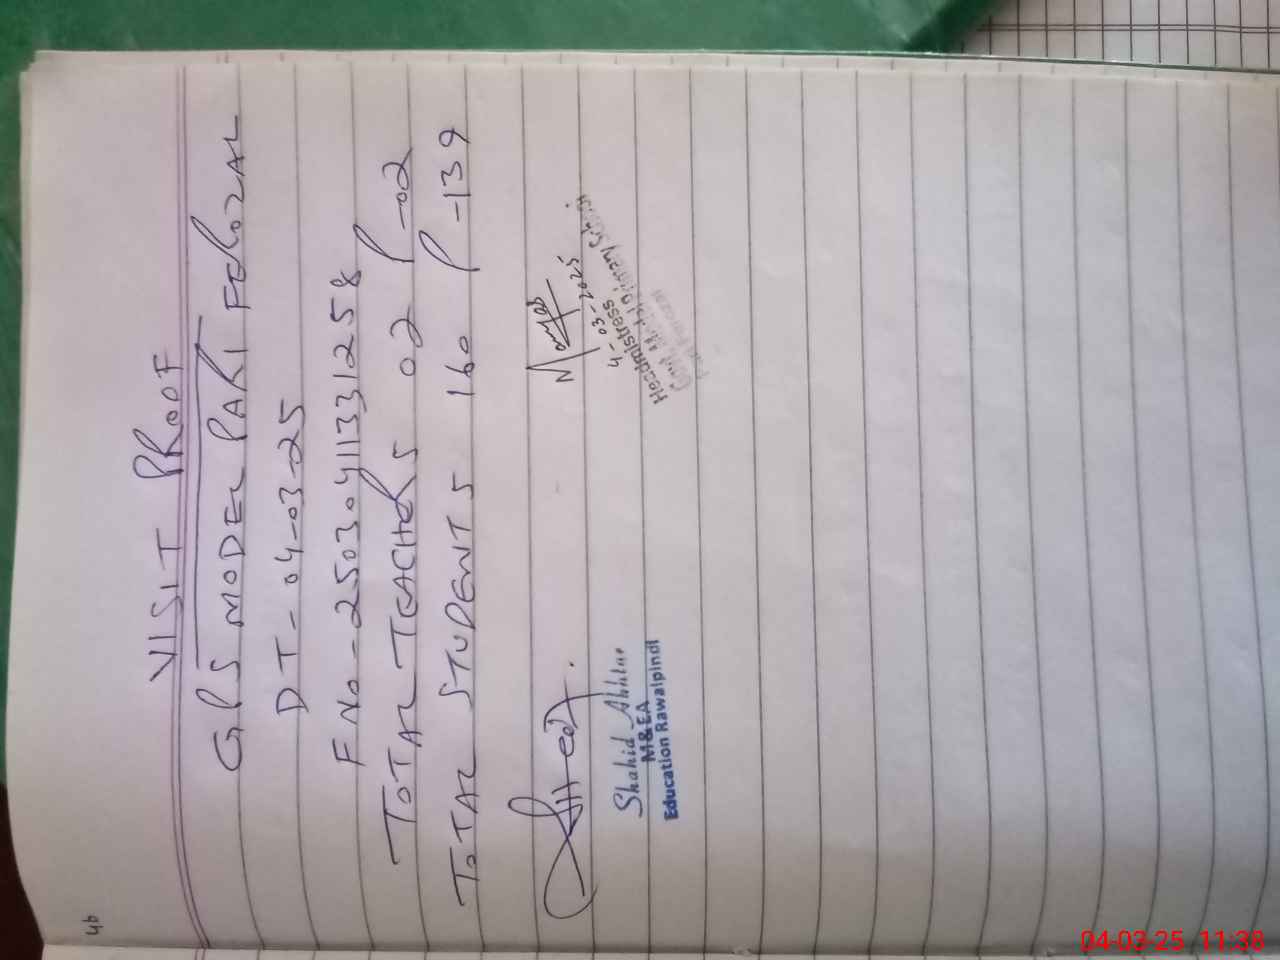 46
VISIT PROOF
GPS MODEL PARI FEROZAL
DT-04-03-25
F No-25030411331258
TOTAL TEACHERS 02 P-02
TOTAL STUDENTS 160 P-139
4-03-2025
Shahid Akhtar
M&EA
Education Rawalpindi
Headmistress
Govt Model Primary School
04-03-25 11:38